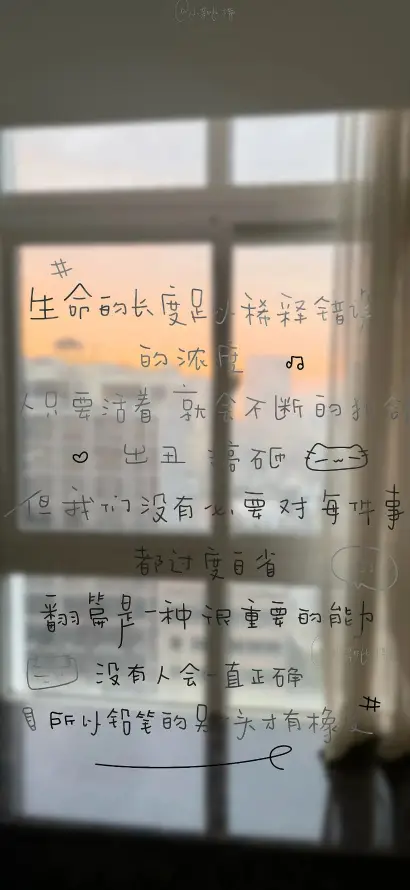 生命的长度足以稀释错误
的浓度
人只要活着 就会不断的犯错
出丑 搞砸
但我们没有必要对每件事
都过度自省
翻篇是一种很重要的能力
没有人会一直正确
所以铅笔的另一头才有橡皮